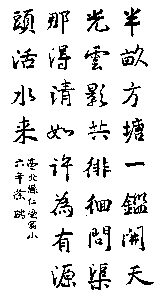 半畝方塘一鑑開天
光雲影共徘徊問渠
那得清如許為有源
頭活水来
臺北縣仁愛國小
六年徐